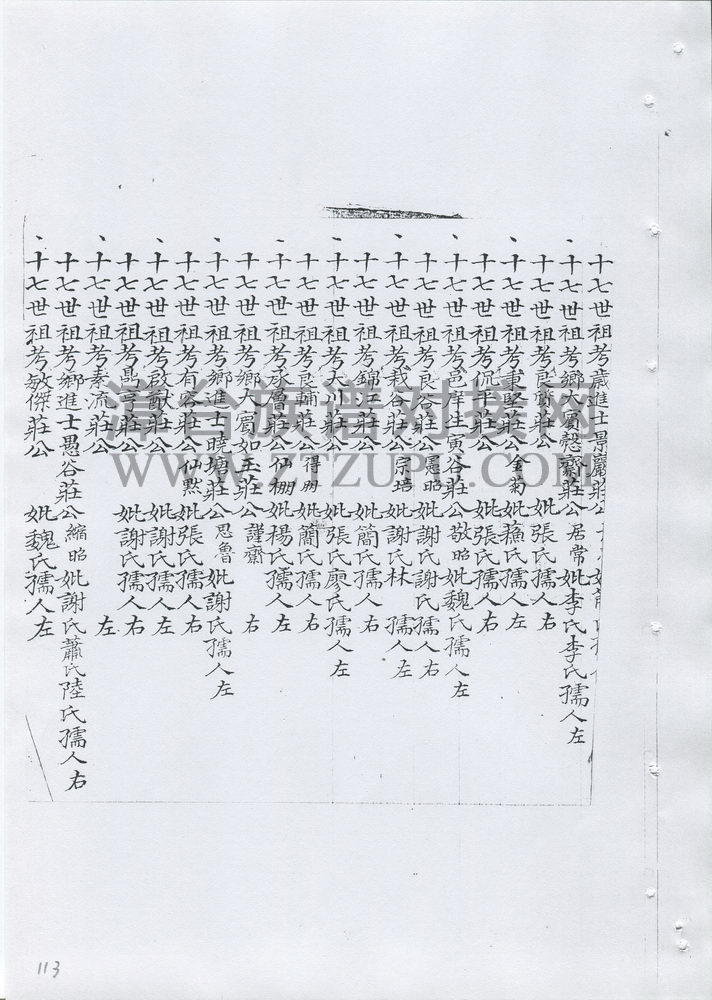 十七世祖考歲進士景巖莊公
十七世祖考鄉大賓慤齋莊公居常妣李氏李氏孺人左
十七世祖考良齊莊公 妣張氏孺人右
十七世祖考東堅莊公金菊 妣蘓氏孺人左
十七世祖考侃平莊公 妣張氏孺人右
十七世祖考邑庠生寅谷莊公敬昭妣魏氏孺人左
十七世祖考良谷莊公憲昭 妣謝氏謝氏孺人右
十七世祖考栽谷莊公宗培 妣謝氏林 孺人左
十七世祖考錦江莊公 妣簡氏孺人右
十七世祖考大川莊公 妣張氏廖氏孺人左
十七世祖考良輔莊公得 妣簡氏孺人右
十七世祖考承魯莊公仲棚 妣楊氏孺人左
十七世祖考鄉大賓如玉莊公謹齋 右
十七世祖考鄉進士曉塘莊公思魯 妣謝氏孺人左
十七世祖考有容莊公仙默 妣張氏孺人右
十七世祖考啟猷莊公 妣謝氏孺人左
十七世祖考鼎亨莊公 妣謝氏孺人右
十七世祖考秦流莊公 左
十七世祖考鄉進士愚谷莊公縮昭 妣謝氏蕭氏陸氏孺人右
十七世祖考敏傑莊公 妣魏氏孺人左
漳台族谱对接网
WWW.ZTZUPU.COM
113